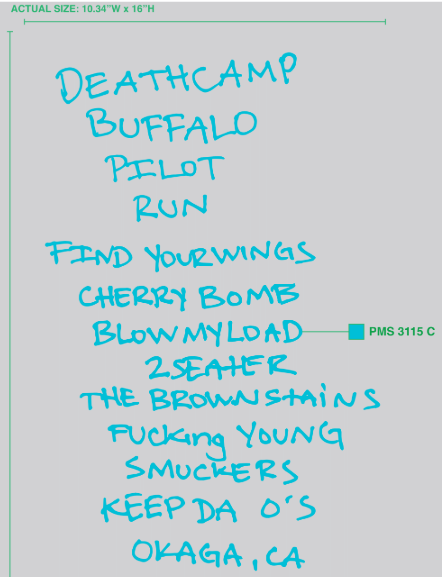 ACTUAL SIZE: 10.34"W x 16"H
DEATHCAMP
BUFFALO
PILOT
RUN
FIND YOUR WINGS
CHERRY BOMB
BLOW MY LOAD
PMS 3115 C
2SEATER
THE BROWN STAiNS
FUCKing YOUNG
SMUCKERS
KEEP DA O'S
OKAGA, CA